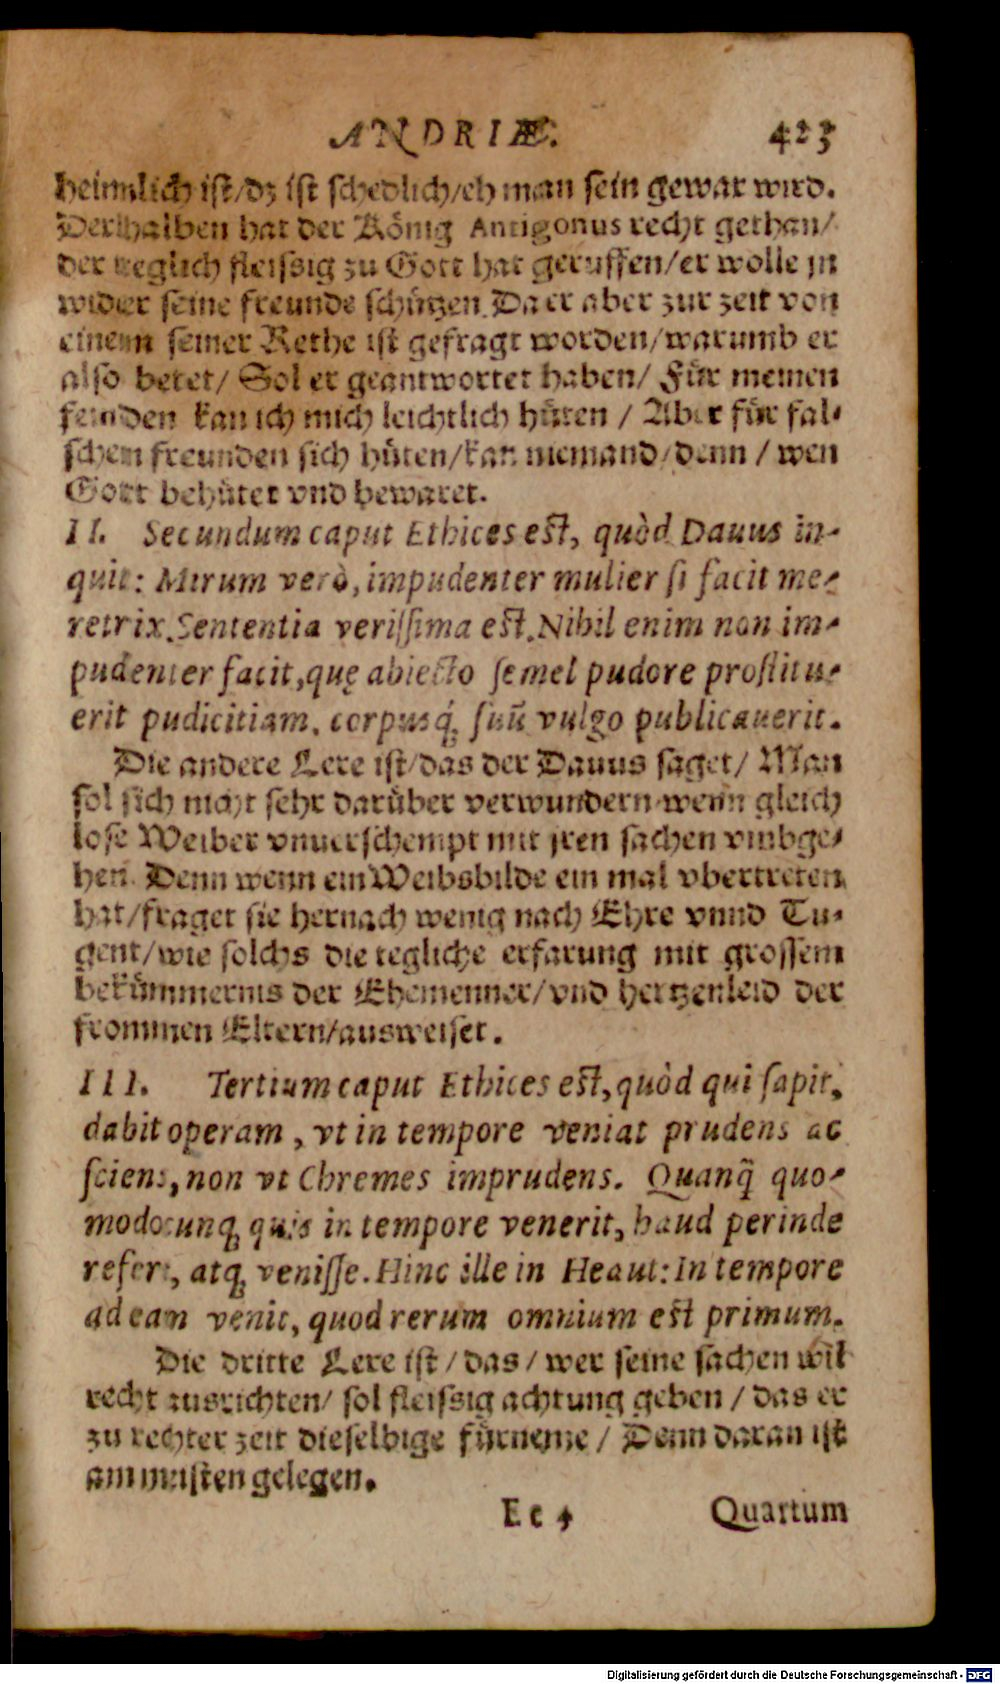 ANDRIÆ. 423
heimlich ist/dz ist schedlich/eh man sein gewar wird.
Derhalben hat der König Antigonus recht gethan/
der teglich fleissig zu Gott hat geruffen/er wolle jn
wider seine freunde schützen. Da er aber zur zeit von
einem seiner Rethe ist gefragt worden/warumb er
also betet/ Sol er geantwortet haben/ Für meinen
feinden kan ich mich leichtlich hüten / Aber für fal-
schen freunden sich hüten/kan niemand/denn / wen
Gott behütet vnd bewaret.
II. Secundum caput Ethices est, quòd Dauus in-
quit: Mirum verò, impudenter mulier si facit me-
retrix. Sententia verissima est. Nihil enim non im-
pudenter facit, quę abiecto semel pudore prostitu-
erit pudicitiam, corpusq́; suũ vulgo publicauerit.
Die andere Lere ist/das der Dauus saget/ Man
sol sich nicht sehr darüber verwundern wenn gleich
lose Weiber vnuerschempt mit jren sachen vmbge-
hen. Denn wenn ein Weibsbilde ein mal vbertreten
hat/fraget sie hernach wenig nach Ehre vnnd Tu-
gent/wie solchs die tegliche erfarung mit grossem
bekümmernis der Ehemenner/vnd hertzenleid der
frommen Eltern/ausweiset.
III. Tertium caput Ethices est, quòd qui sapit,
dabit operam, vt in tempore veniat prudens ac
sciens, non vt Chremes imprudens. Quanq̃ quo-
modocunq; quis in tempore venerit, haud perinde
refert, atq; venisse. Hinc ille in Heaut: In tempore
ad eam venit, quod rerum omnium est primum.
Die dritte Lere ist / das / wer seine sachen wil
recht ausrichten/ sol fleissig achtung geben / das er
zu rechter zeit dieselbige fürneme / Denn daran ist
am meisten gelegen.
Ee 4 Quartum
Digitalisierung gefördert durch die Deutsche Forschungsgemeinschaft - DFG